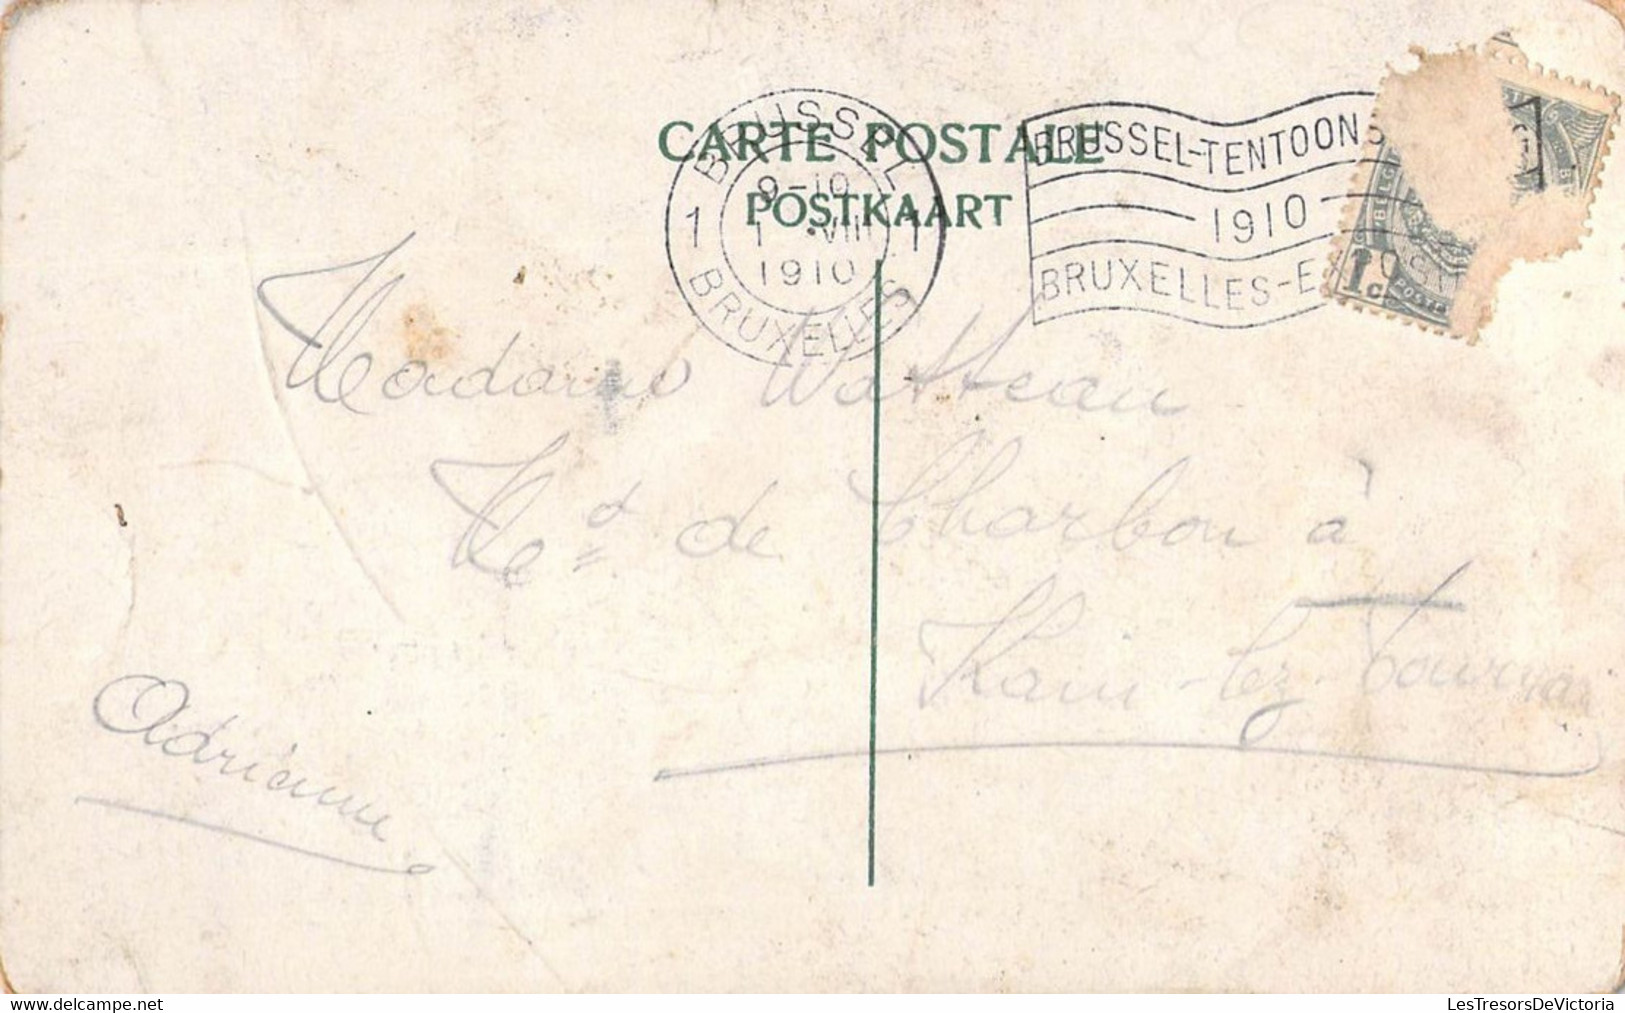 CARTE POSTALE
POSTKAART
BRUSSEL
1 1
9-10
1 VIII
1910
BRUXELLES
BRUSSEL-TENTOONS
1910
BRUXELLES-EX
BELG
1c
POSTE
Madame Watteau
Md de Charbon à
Kain-lez-Tournai
Adrienne
LesTresorsDeVictoria